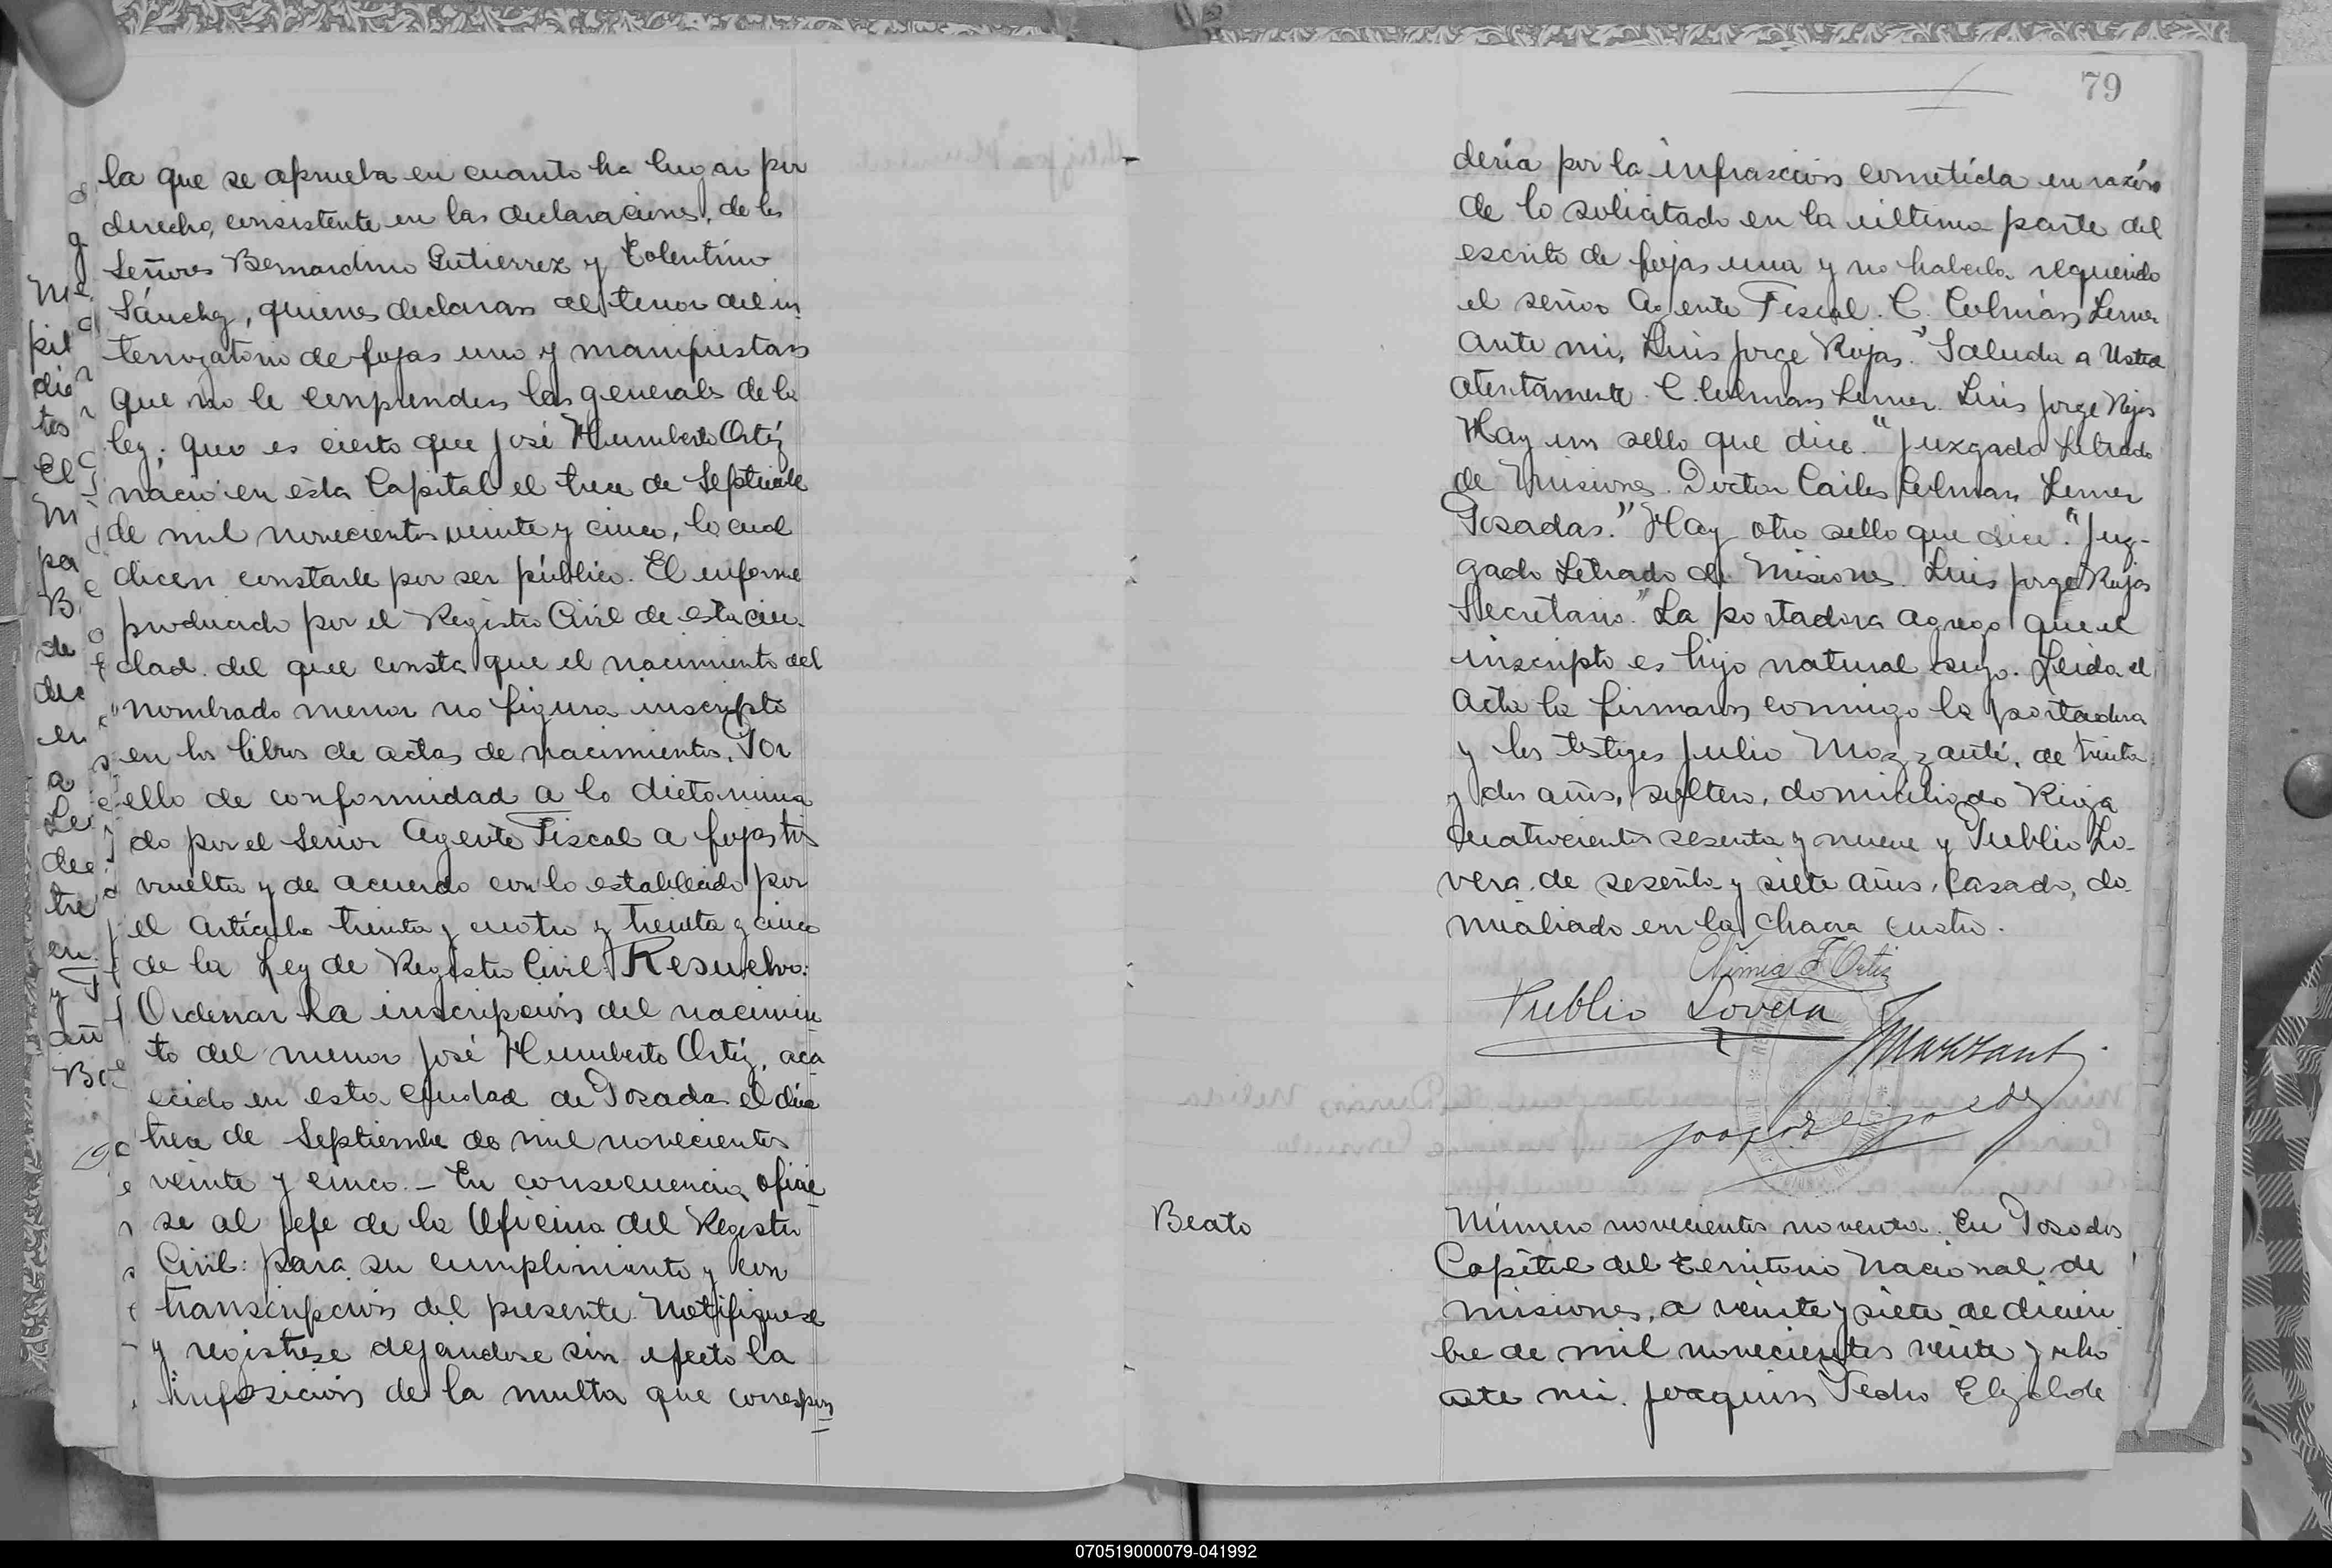 la que se aprueba en cuanto ha lugar por
derecho, consistente en las declaraciones, de los
Señores Bernardino Gutierrez y Tolentino
Sánchez, quienes declaran al tenor del in
terrogatorio de fojas uno y manifiestan
que no le comprenden las generales de la
ley; que es cierto que José Humberto Ortíz
nació en ésta Capital el trece de Septiembre
de mil novecientos veinte y cinco, lo cual
dicen constarle por ser público. El informe
producido por el Registro Civil de esta ciu-
dad. del que consta que el nacimiento del
nombrado menor no figura inscripto
en los libros de actas de nacimientos. Por
ello de conformidad a lo dictamina
do por el Señor Agente Fiscal a fojas tres
vuelta y de acuerdo con lo establecido por
el Artículo treinta y cuatro y treinta y cinco
de la Ley de Registro Civil: Resuelvo:
Ordenar la inscripción del nacimien
to del menor José Humberto Ortíz, aca
ecido en esta ciudad de Posadas el día
trece de Septiembre de mil novecientos
veinte y cinco. - En consecuencia ofície
se al Jefe de la Oficina del Registro
Civil: para su cumplimiento y con
transcripción del presente. Notifiquese
y registrese dejandose sin efecto la
imposición de la multa que correspon
79
dería por la infracción cometida en razón
de lo solicitado en la última parte del
escrito de fojas una y no haberla requerido
el señor Agente Fiscal. C. Culmán Lerner
Ante mi, Luis Jorge Rojas." Saluda a Usted
atentamente. C. Culman Lerner. Luis Jorge Rojas
Hay un sello que dice. "Juzgado Letrado
de Misiones. Doctor Carlos Culman Lerner
Posadas." Hay otro sello que dice. "Juz-
gado Letrado de Misiones. Luis Jorge Rojas
Secretario." La portadora agregó que el
inscripto es hijo natural suyo. Leida el
Acta la firman conmigo la portadora
y los testigos Julio Mozzanti, de treinta
y dos años, soltero, domiciliado Rioja
cuatrocientos sesenta y nueve y Publio Lo-
vera, de sesenta y siete años, Casado, do
miciliado en la Chacra cuatro.
Nimia F Ortiz
Publio Lovera
Beato
Número novecientos noventa. En Posadas
Capital del Territorio Nacional de
Misiones, a veinte y siete de diciem
bre de mil novecientos veinte y ocho
ante mi. Joaquin Pedro Elizalde
070519000079-041992